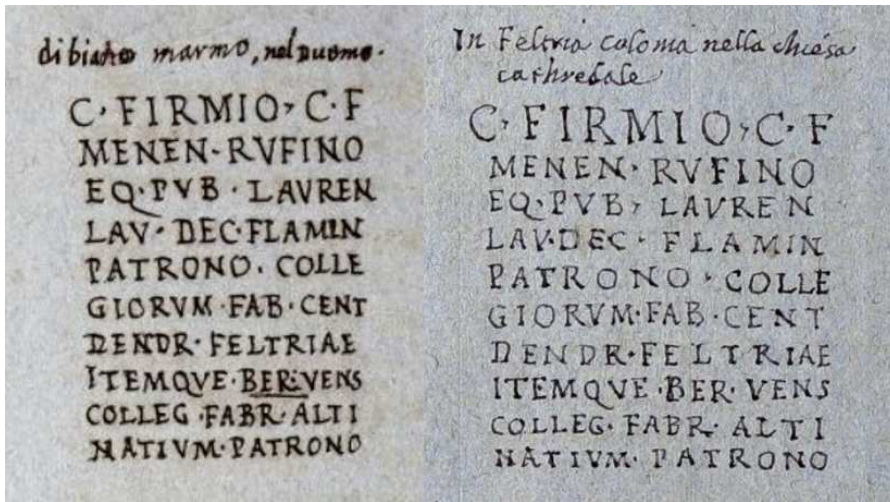 di bianco marmo, nel Duomo.
C, FIRMIO, C. F
MENEN - RVFINO
EQ. PVB. LAVREN
LAV. DEC. FLAMIN
PATRONO. COLLE
GIORVM. FAB. CENT
DENDR. FELTRIAE
ITEMQVE. BER. VENS
COLLEG. FABR. ALTI
NATIVM. PATRONO
In Feltria colonia nella chiesa
cathredale
C, FIRMIO, C. F
MENEN. RVFINO
EQ. PVB, LAVREN
LAV. DEC. FLAMIN
PATRONO. COLLE
GIORVM. FAB. CENT
DENDR. FELTRIAE
ITEMQVE. BER. VENS
COLLEG. FABR. ALTI
NATIVM. PATRONO